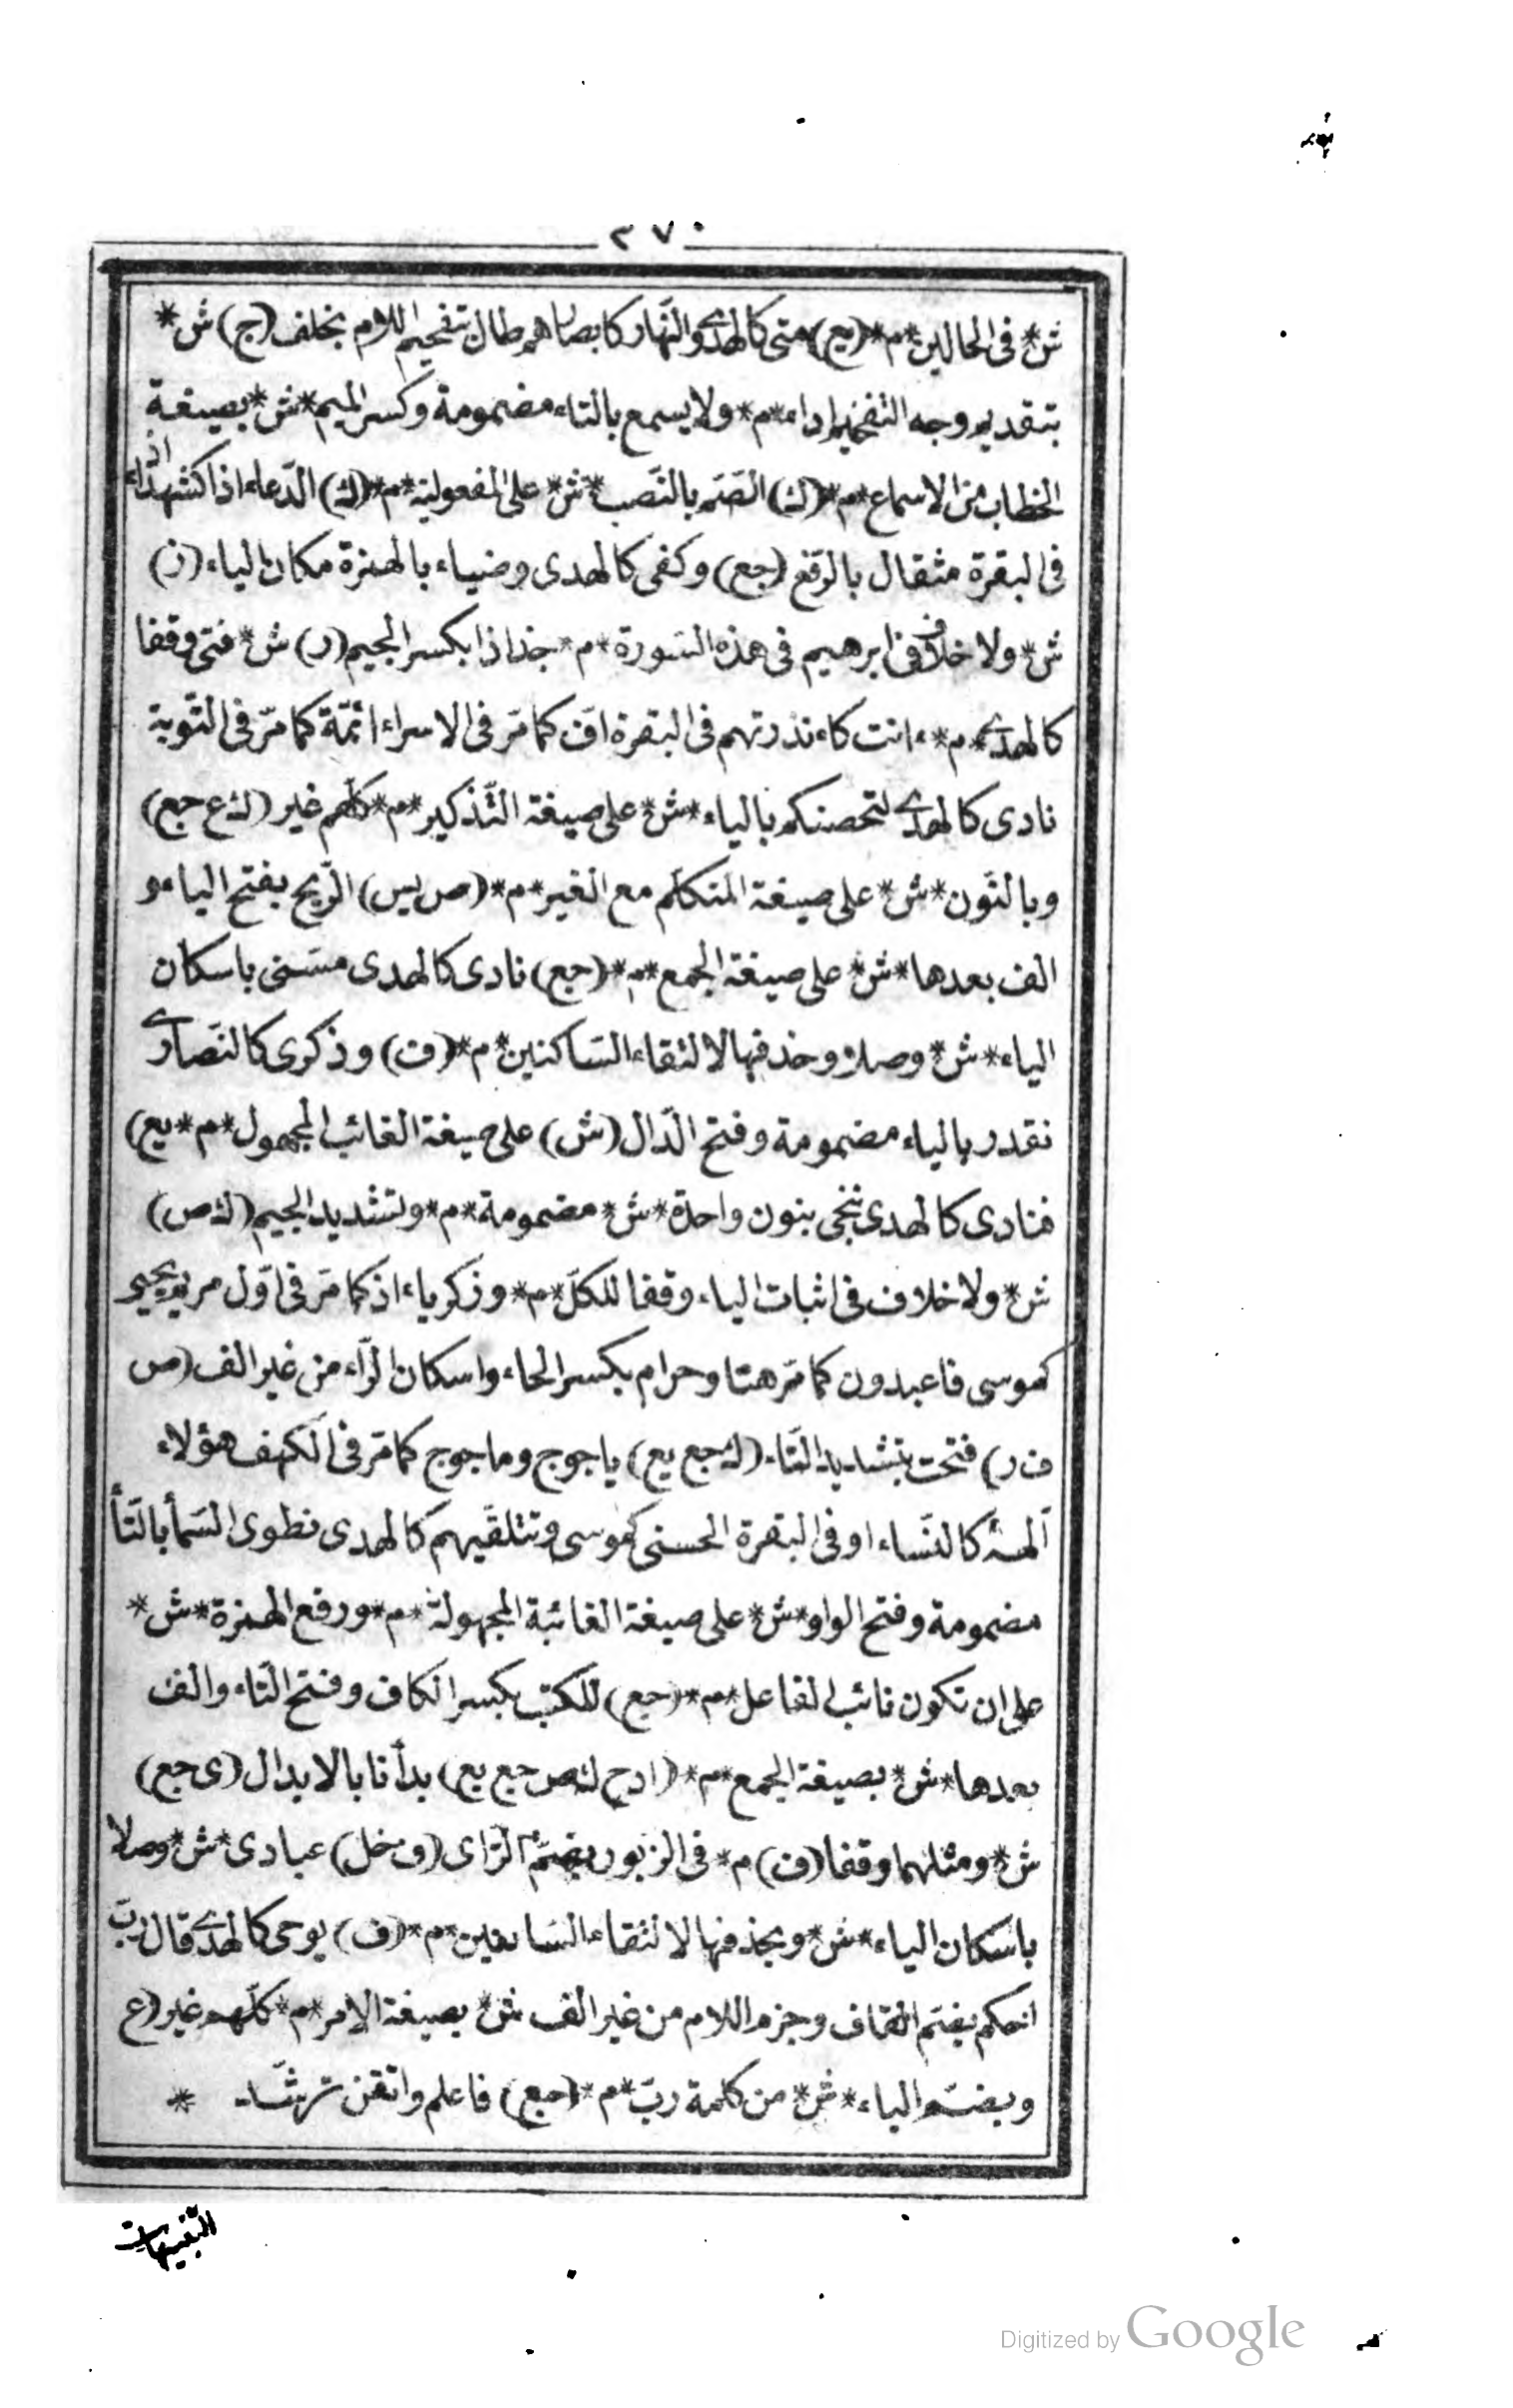 ٢٧٠
ش* فى الحالين*م*(يع) متى كالهدى والنهار كابصارهم طال تفخيم اللام بخلف (ج) ش*
بتقديم وجه التفخيم اداء*م* ولا يسمع بالتاء مضمومة وكسر الميم*ش* بصيغة
الخطاب من الاسماع*م*(ك) الصّم بالنّصب*ش* على المفعولية*م*(ك) الدّعاء اذا كشهداء اذ
فى البقرة مثقال بالرّفع (جع) وكفى كالهدى وضياء بالهمزة مكان الياء (ز)
ش* ولا خلاف فى ابرهيم فى هذه السّورة*م* جذاذا بكسر الجيم (ر) ش* فتى وقفا
كالهدى*م* ءانت كاءنذرتهم فى البقرة افّ كما مّر فى الاسراء ائمّة كما مرّ فى التّوبة
نادى كالهدى لتحصنكم بالياء*ش* على صيغة التّذكير*م* كلّهم غير (ك ع جع)
وبالنّون*ش* على صيغة المتكلّم مع الغير*م*(ص يس) الرّيح بفتح الياء و
الف بعدها*ش* على صيغة الجمع*م*(جع) نادى كالهدى مسّنى باسكان
الياء*ش* وصلا وحذفها لالتقاء السّاكنين*م*(ف) وذكرى كالنّصارى
نقدر بالياء مضمومة وفتح الدّال (ش) على صيغة الغائب المجهول*م*يع)
فنادى كالهدى ننجى بنون واحدة*ش* مضمومة*م* وتشديد الجيم (ك ص)
ش* ولا خلاف فى اثبات الياء وقفا للكلّ*م* وزكرياء اذ كما مّر فى اوّل مريم يحيى
كموسى فاعبدون كما مّر هنا وحرام بكسر الحاء واسكان الرّاء من غير الف (ص
ف ر) فتحت بتشديد التّاء (ك جع يع) ياجوج وماجوج كما مّر فى الكهف هؤلاء
آلهة كالنّساء او فى البقرة الحسنى كموسى وتتلقّيهم كالهدى نطوى السّمأ بالتّأ
مضمومة وفتح الواو*ش* على صيغة الغائبة المجهولة*م* ورفع الهمزة*ش*
على ان تكون نائب الفاعل*م*(جع) للكتب بكسر الكاف وفتح التّاء والف
بعدها*ش* بصيغة الجمع*م*(ا د ح ك ص جع يع) بدأنا بالابدال (ى جع)
ش* ومثلهما وقفا (ف) م* فى الزبور بضّم الزّاى (ف خل) عبادى*ش* وصلا
باسكان الياء*ش* وبحذفها لالتقاء السّاكنين*م*(ف) يوحى كالهدى قال ربّ
احكم بضّم القاف وجزم اللام من غير الف ش* بصيغة الامر*م* كلّهم غير (ع
وبضّم الباء*ش* من كلمة ربّ*م*(جع) فاعلم واتقن ترشّد *
التّنبيهات
Digitized by Google